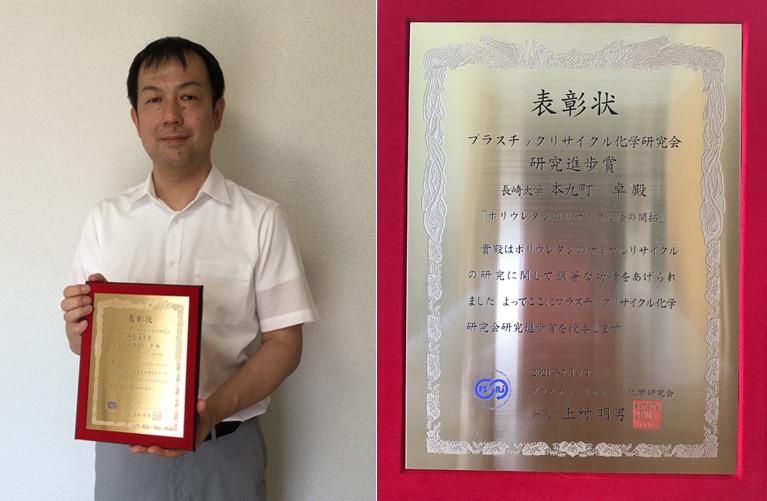 表彰状
プラスチックリサイクル化学研究会
研究進歩賞
長崎大学 本九町 卓 殿
「ポリウレタンのリサイクル法の開拓」
貴殿はポリウレタンのケミカルリサイクル
の研究に関して顕著な功績をあげられ
ました よってここにプラスチックリサイクル化学
研究会研究進歩賞を授与します
2021年7月9日
プラスチックリサイクル化学研究会
会長 上村明男
表彰状